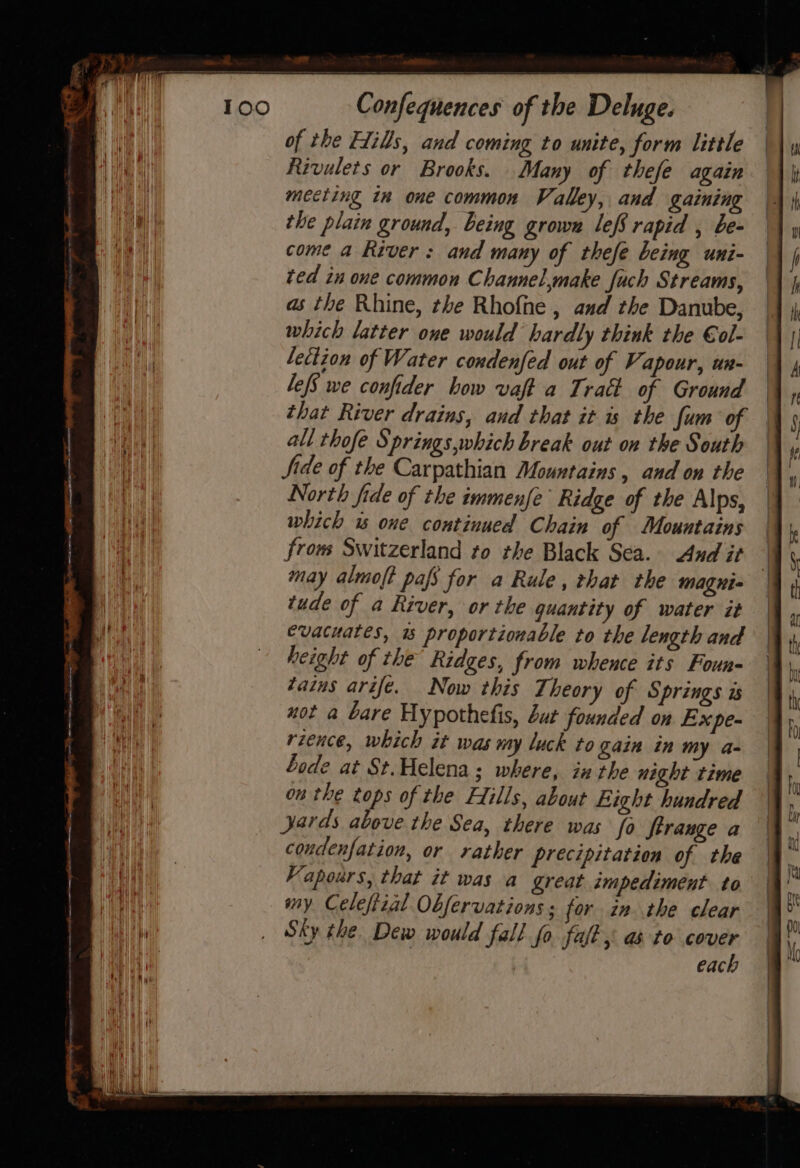 100 Conſequences of the Deluge.
of the Hills, and coming to unite, form little
Rivulets or Brooks. Many of theſe again
meeting in one common Valley, and gaining
the plain ground, being grown leſs rapid , be-
come a River : and many of theſe being uni-
ted in one common Channel,make ſuch Streams,
as the Rhine, the Rhoſne , and the Danube,
which latter one would hardly think the Col-
lection of Water condenſed out of Vapour, un-
leſs we conſider how vaſt a Tract of Ground
that River drains, and that it is the ſum of
all thoſe Springs,which break out on the South
ſide of the Carpathian Mountains , and on the
North ſide of the immenſe Ridge of the Alps,
which is one continued Chain of Mountains
from Switzerland to the Black Sea. And it
may almoſt paſs for a Rule, that the magni-
tude of a River, or the quantity of water it
evacuates, is proportionable to the length and
height of the Ridges, from whence its Foun-
tains ariſe. Now this Theory of Springs is
not a bare Hypotheſis, but founded on Expe-
rience, which it was my luck to gain in my a-
bode at St.Helena ; where, in the night time
on the tops of the Hills, about Eight hundred
yards above the Sea, there was ſo ſtrange a
condenſation, or rather precipitation of the
Vapours, that it was a great impediment to
my Celeſtial Obſervations ; for in the clear
Sky the Dew would fall ſo faſt, as to cover
each